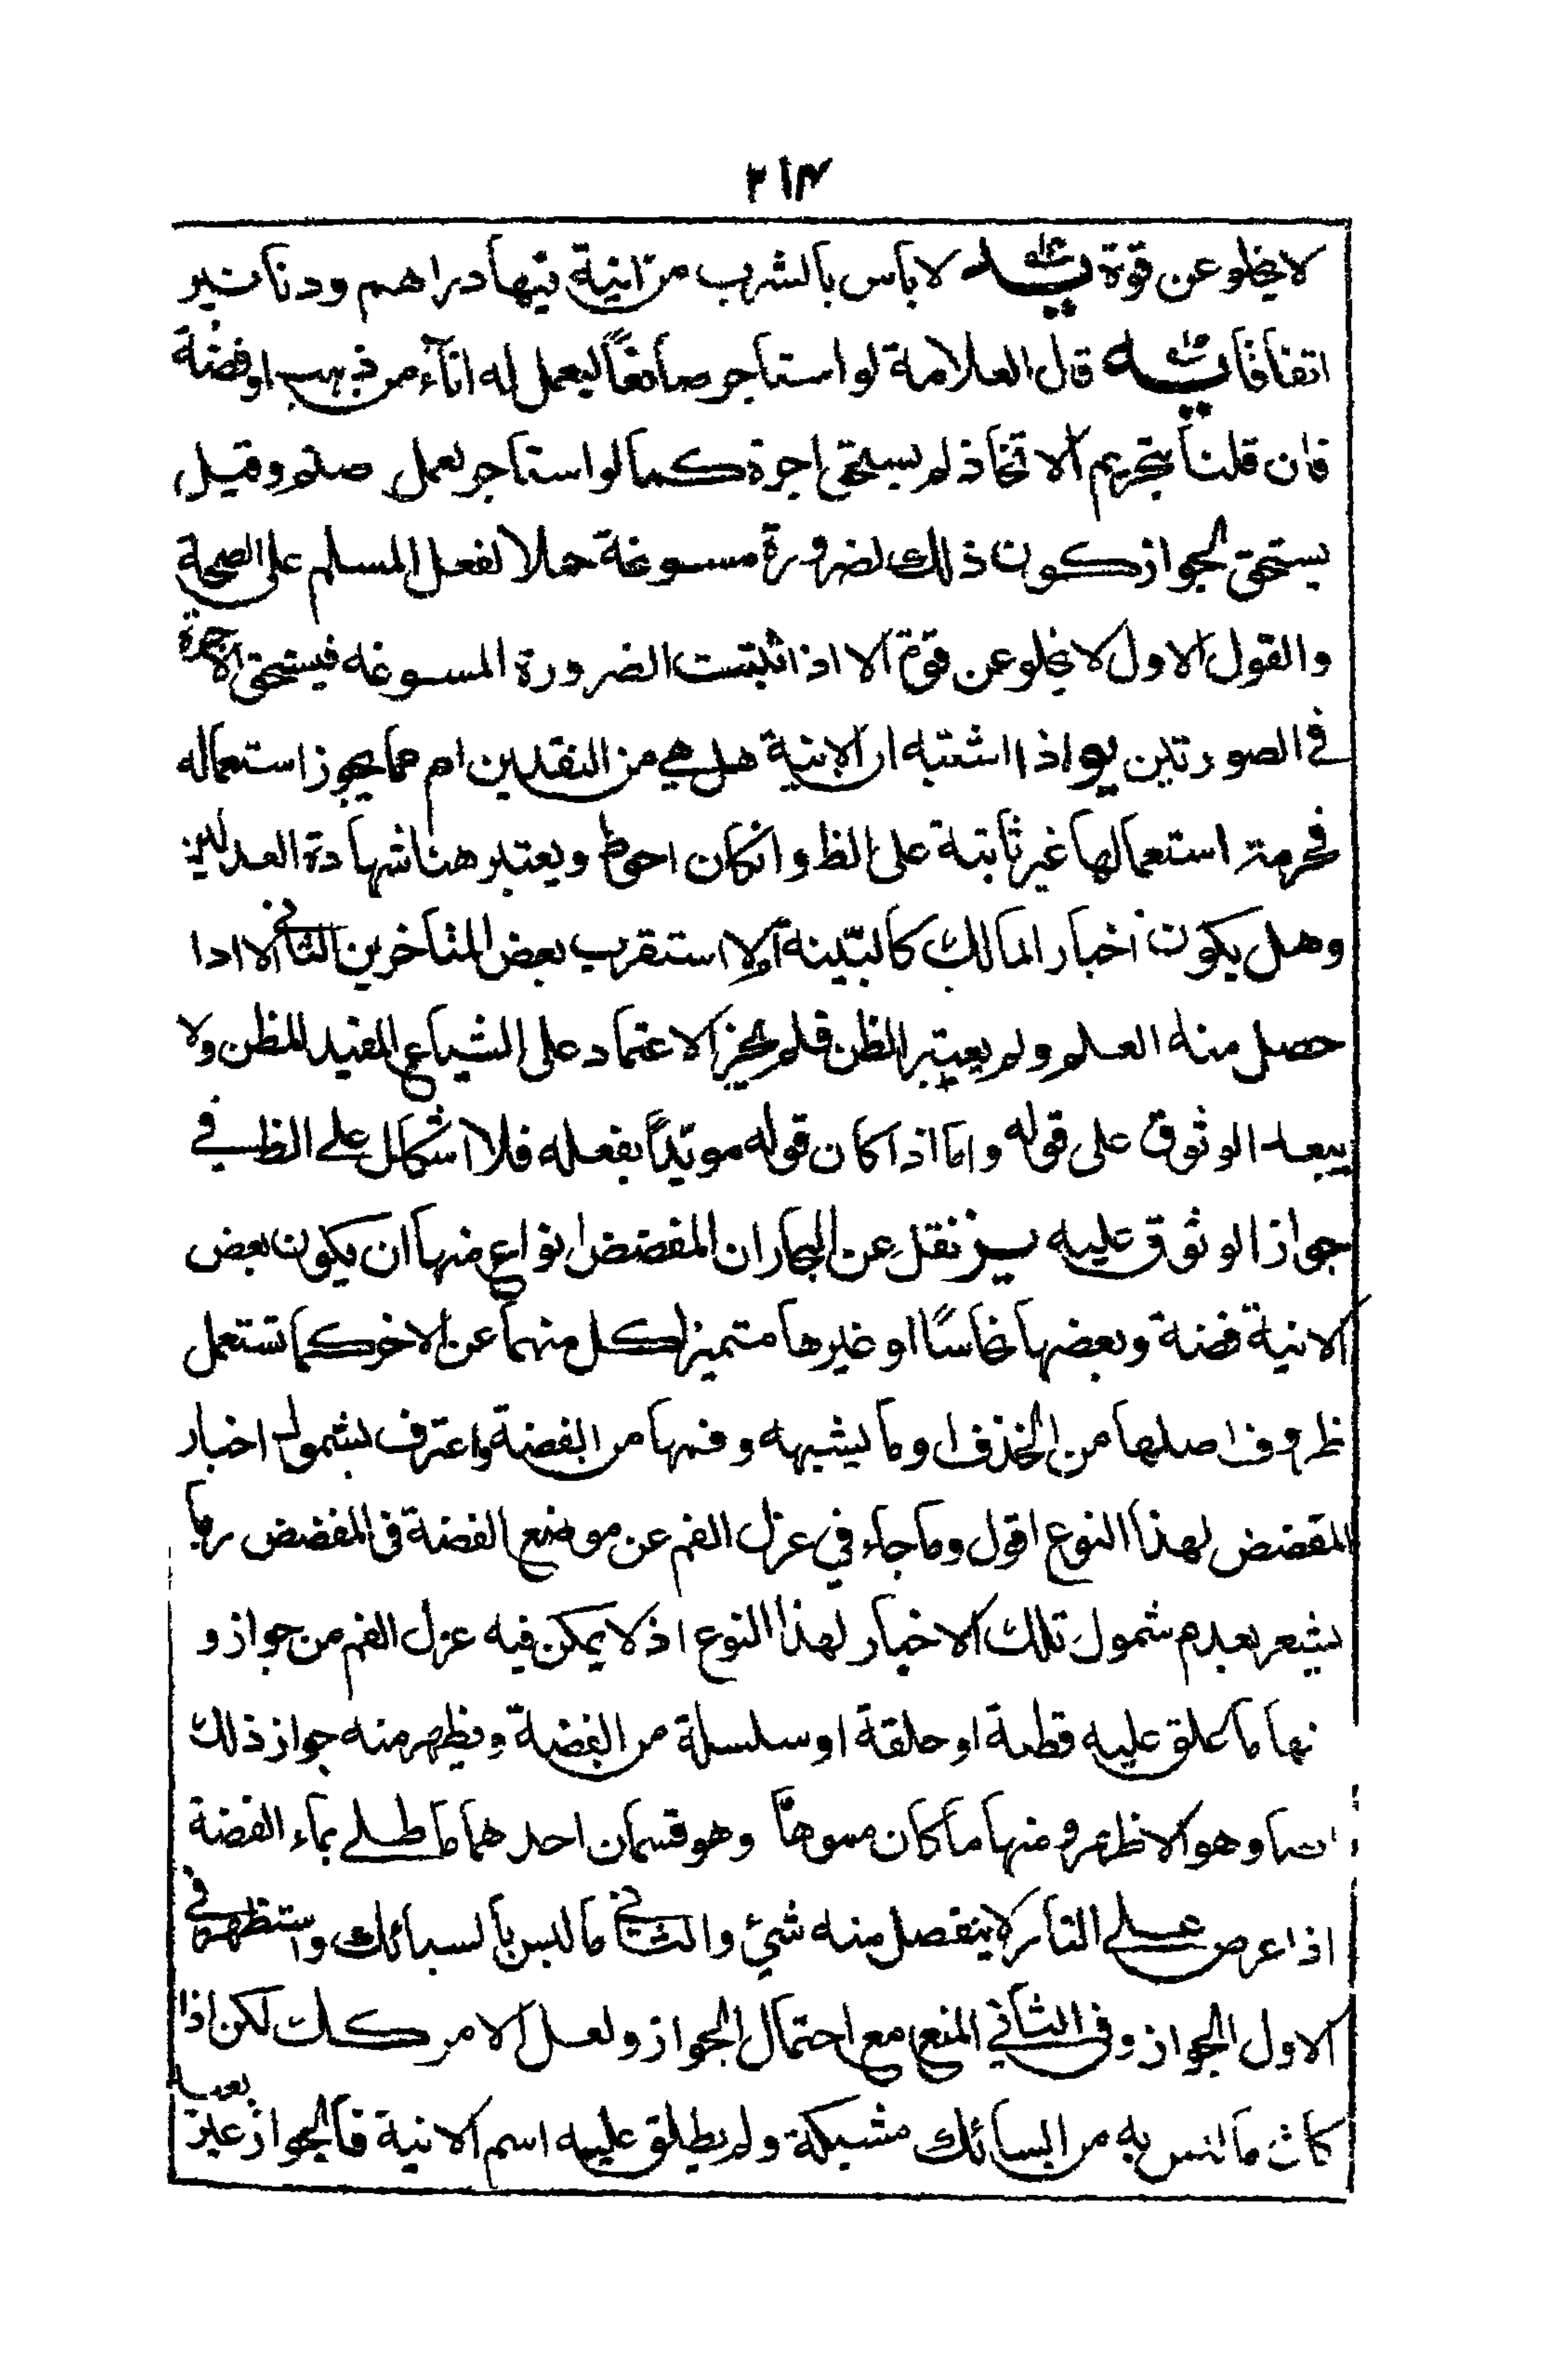 ٢١٣
لا يخلو عن قوة لا باس بالشرب من انية فيها دراهم ودنانير
اتفاقا قال العلامة لو استاجر صانعاً ليعمل له اناء من ذهب او فضة
فان قلنا بتحريم الاتخاذ لم يستحق اجرة كما لو استاجر لعمل صنم وقيل
يستحق لجواز كون ذلك لضرورة مسوغة حملا لفعل المسلم على الصحة
والقول الاول لا يخلو عن قوة الا اذا ثبتت الضرورة المسوغه فيستحق الاجرة
في الصورتين يو اذا اشتبه ان الانية هل هي من النقدين ام مما يجوز استعماله
فحرمة استعمالها غير ثابتة على الظ وانكان احوط ويعتبر هنا شهادة العدلين
وهل يكون اخبار المالك كالبيّنة ام لا استقرب بعض المتاخرين الثاني الا اذا
حصل منه العلم ولم يعتبر الظن فلم يجز الاعتماد على الشياع المفيد للظن ولا
يبعد الوثوق على قوله واما اذا كان قوله مويّداً بفعله فلا اشكال على الظ في
جواز الوثوق عليه يز نقل عن البحار ان المفضض انواع منها ان يكون بعض
الانية فضة وبعضها نحاسًا او غيرها متميزا كل منهما عن الاخر كما تستعمل
ظروف اصلها من الخذف او ما يشبهه وفمها من الفضة واعترف بشمول اخبار
المفضض لهذا النوع اقول وما جاء في عزل الفم عن موضع الفضة في المفضض ربما
يشعر بعدم شمول تلك الاخبار لهذا النوع اذ لا يمكن فيه عزل الفم من جواز و
نها ما علق عليه قطعة او حلقة او سلسلة من الفضة ويظهر منه جواز ذلك
وهو الاظهر ومنها ما كان مموهاً وهو قسمان احدهما ما طلي بماء الفضة
اذا عرض على النار لا ينفصل منه شئ والثاني ما لبس بالسبائك واستظهر في
الاول الجواز وفي الثاني المنع مع احتمال الجواز ولعل الامر كك لكن اذا
كان ما لبس به من السبائك مشبكة ولم يطلق عليه اسم الانية فالجواز غير بعيد